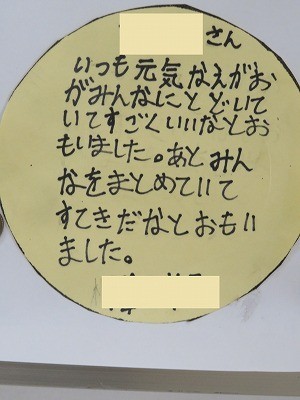 さん
いつも元気なえがお
がみんなにとどいて
いてすごくいいなとお
もいました。あとみん
なをまとめていて
すてきだなとおもい
ました。